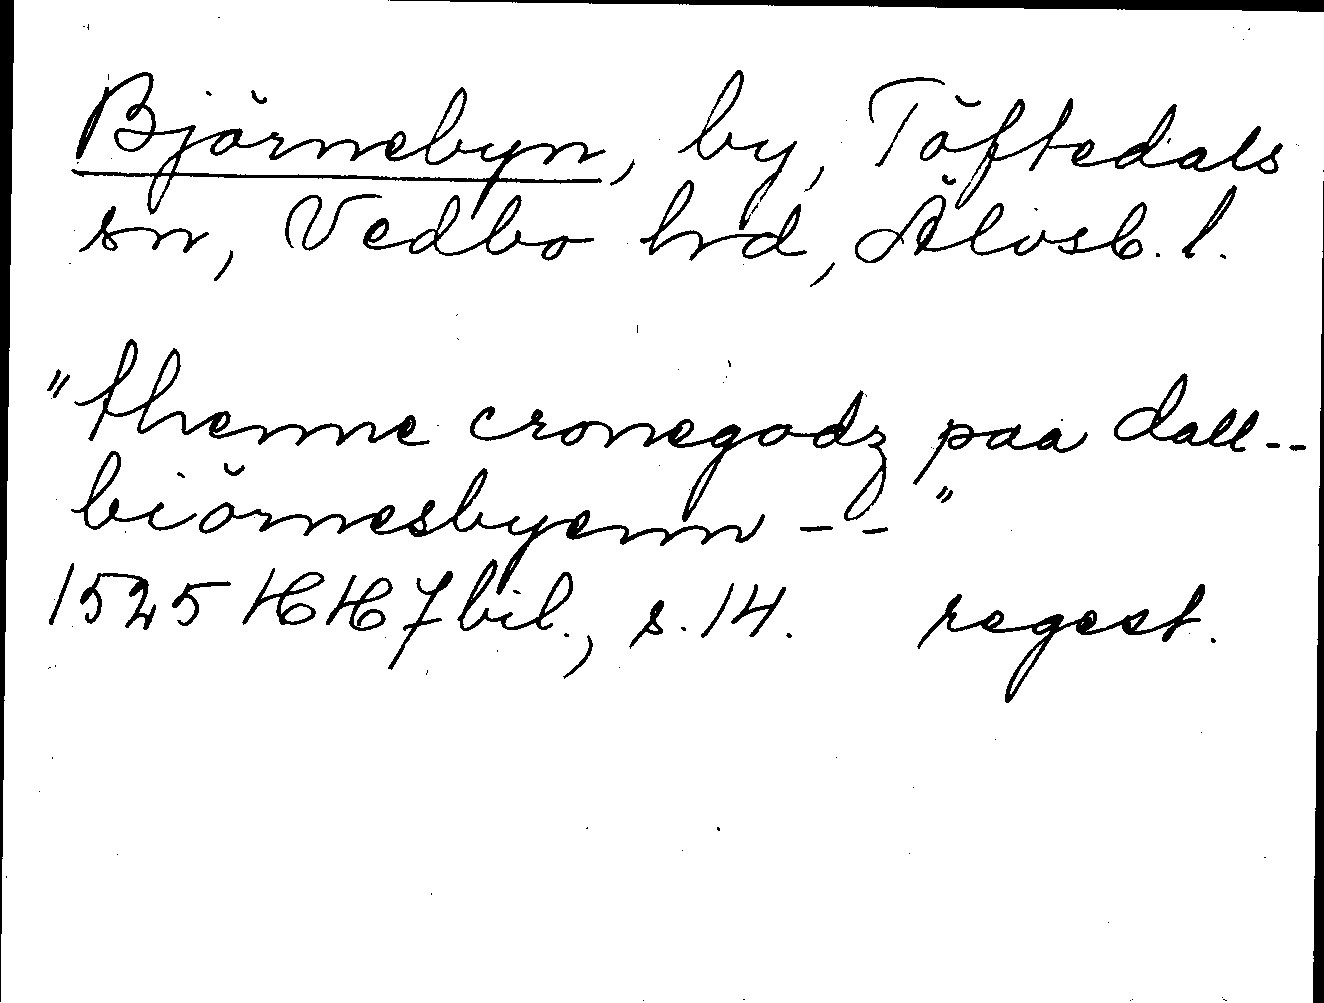 Björnebyn, by, Töftedals
sn, Vedbo hrd, Älvsb. l.
"thenne cronegodz paa dall--
biörnesbyenn --"
1525 HH 7 bil., s. 14. regest.